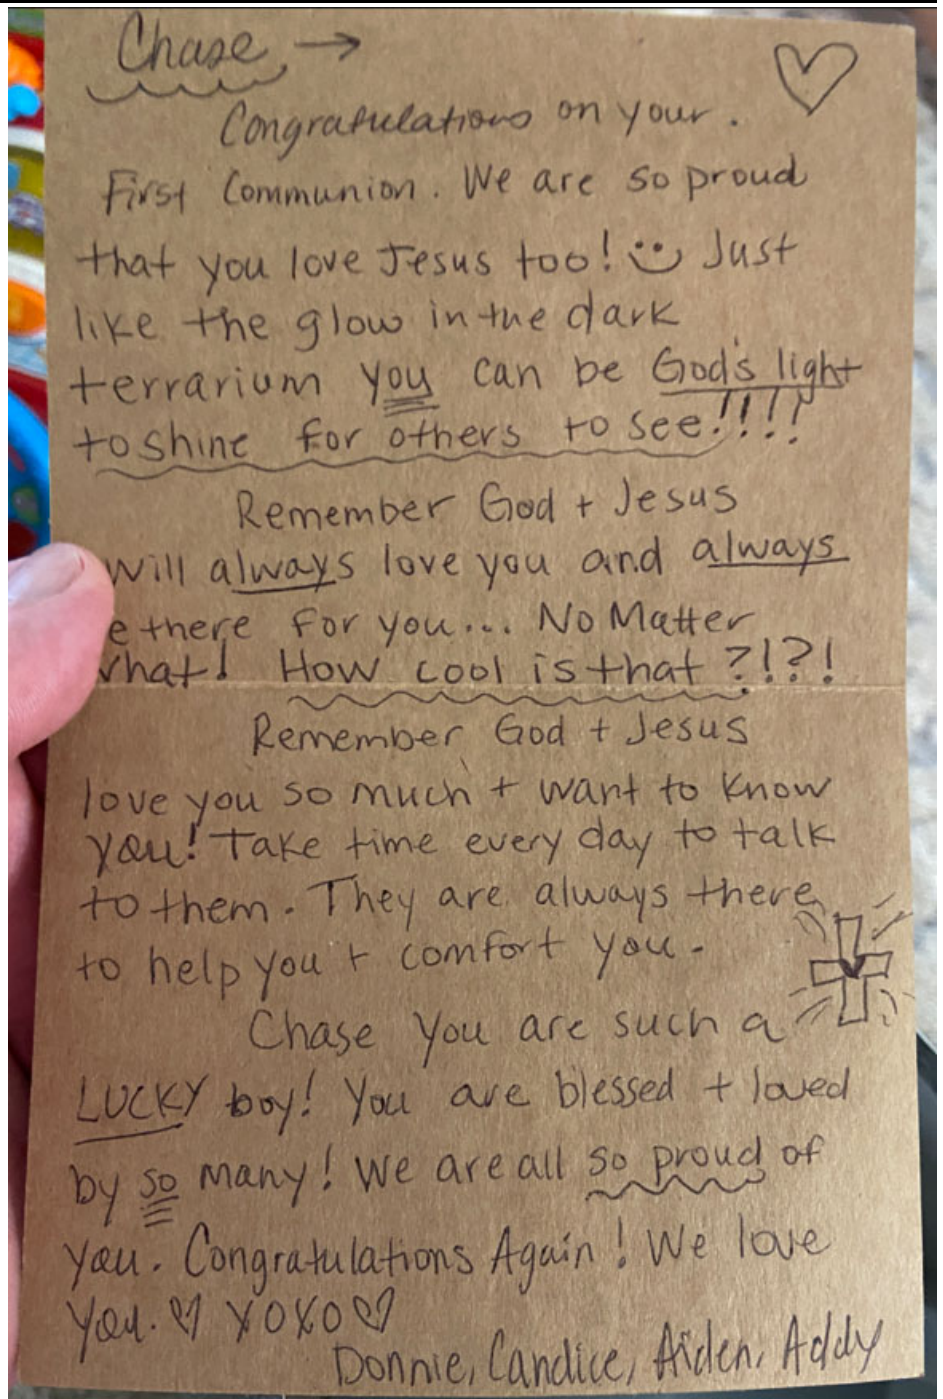 Chase →
Congratulations on your.
First Communion. We are so proud
that you love Jesus too! Just
like the glow in the dark
terrarium you can be God's light
to shine for others to see!!!!
Remember God + Jesus
will always love you and always
e there for you... No Matter
what! How cool is that ?!?!
Remember God + Jesus
love you so much + want to know
you! Take time every day to talk
to them. They are always there
to help you + comfort you.
Chase You are such a
LUCKY boy! You are blessed + loved
by so many! We are all so proud of
you. Congratulations Again! We love
you. ♡ XOXO ♡
Donnie, Candice, Aiden, Addy